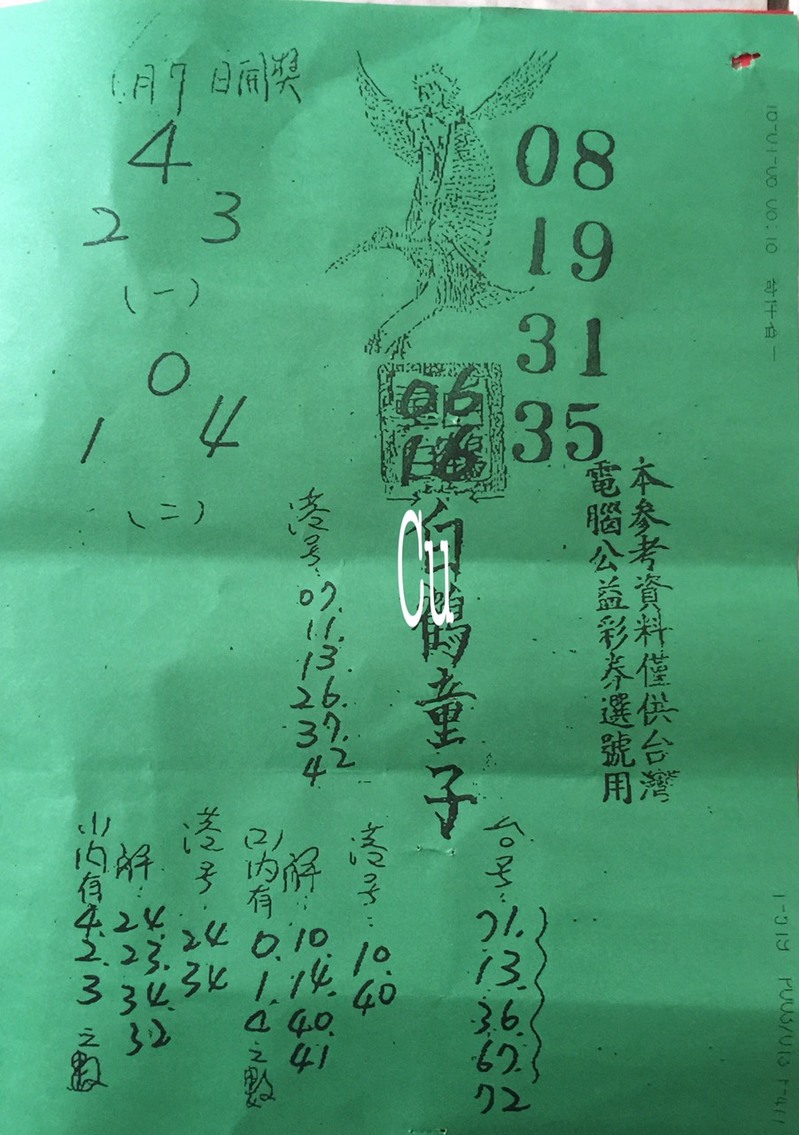 1月7日開獎
4
2 3
(一)
0
1 4
(二)
08
19
31
35
06
16
Cu
白鶴童子
本參考資料僅供台灣
電腦公益彩券選號用
港号:
07.
11.
13.
26.
37.
42
台号:
71.
13.
36.
67.
72
港号:
10.
40
解:
10.
14.
40.
41
口内有
0.
1.
4
之數
港号:
24
34
解:
24.
23.
34.
32
小内有
4.
2.
3
之數